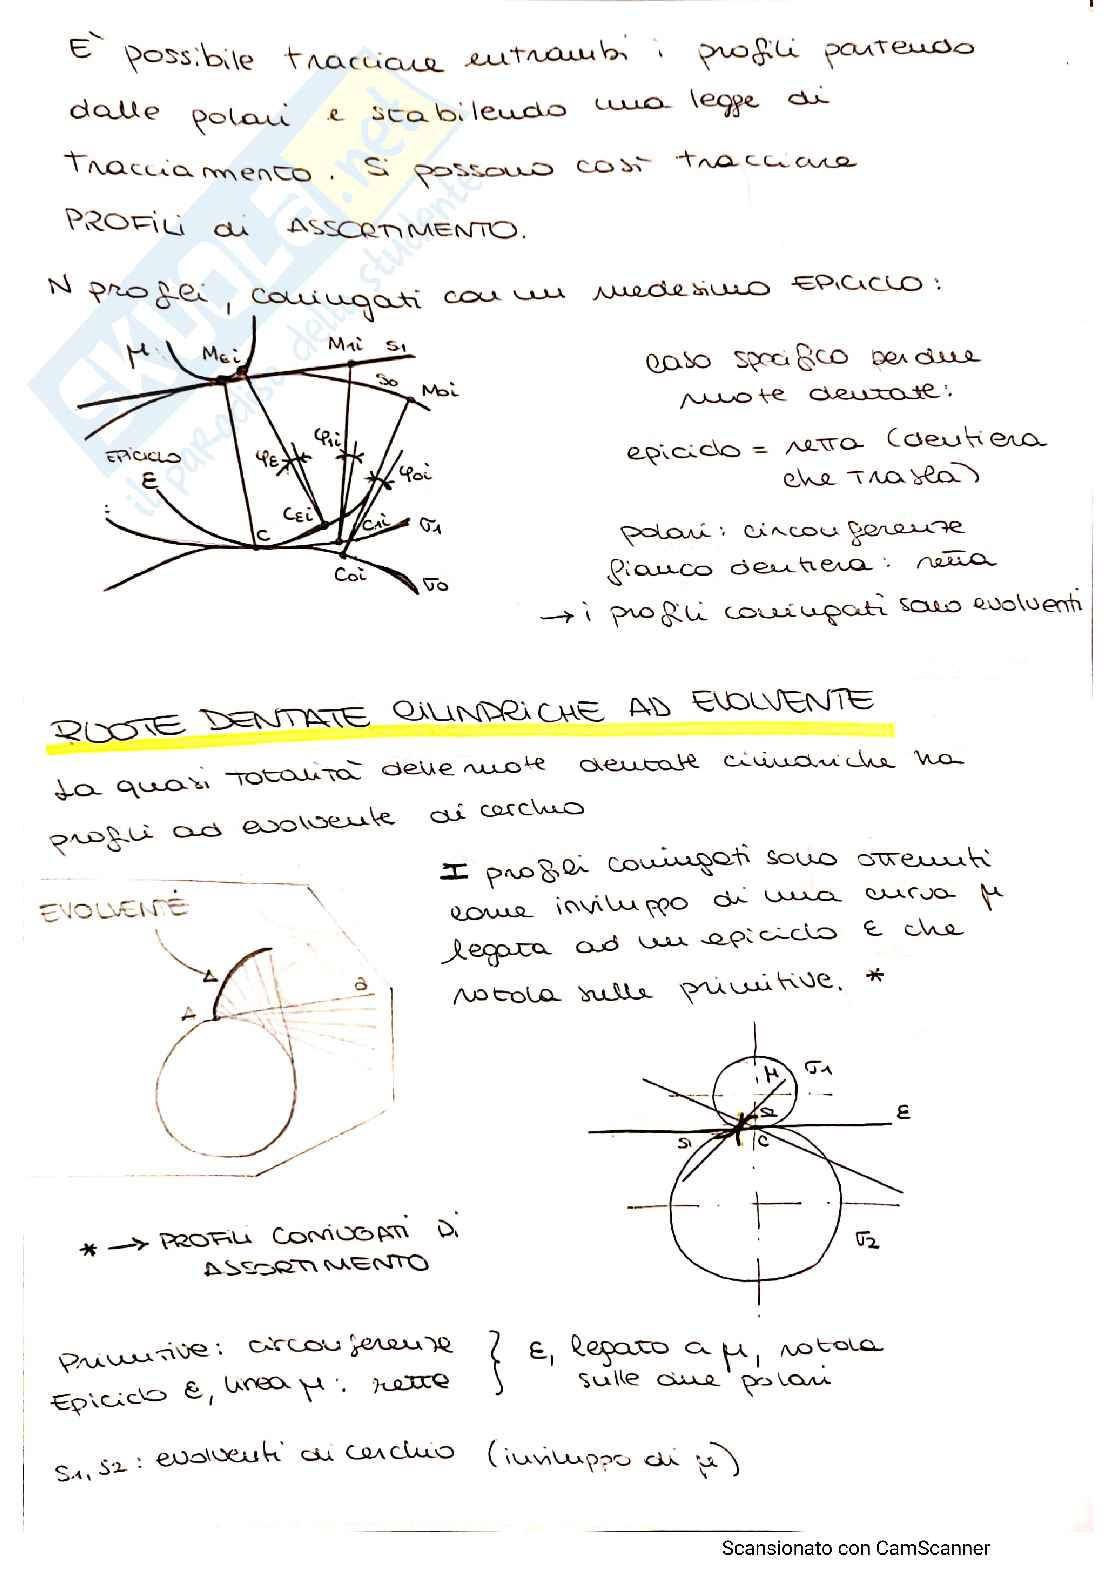 E' possibile tracciare entrambi i profili partendo
dalle polari e stabilendo una legge di
tracciamento. Si possono così tracciare
PROFILI di ASSORTIMENTO.
N profili, coniugati con un medesimo EPICICLO:
μ
Mεi
M1i
S1
S0
M0i
EPICICLO
ε
φε
φ1i
φ0i
Cεi
C1i
σ1
C
C0i
σ0
caso specifico per due
ruote dentate:
epiciclo = retta (dentiera
che trasla)
polari: circonferenze
fianco dentiera: retta
→ i profili coniugati sono evolventi
RUOTE DENTATE CILINDRICHE AD EVOLVENTE
La quasi totalità delle ruote dentate cilindriche ha
profili ad evolvente di cerchio
EVOLVENTE
A
A
a
I profili coniugati sono ottenuti
come inviluppo di una curva μ
legata ad un epiciclo ε che
rotola sulle primitive. *
μ
σ1
S2
ε
S1
C
σ2
* → PROFILI CONIUGATI DI
ASSORTIMENTO
Primitive: circonferenze
Epiciclo ε, linea μ: rette
} ε, legato a μ, rotola
sulle due polari
S1, S2: evolventi di cerchio (inviluppo di μ)
SKUOLA.net
il paradiso dello studente
Scansionato con CamScanner